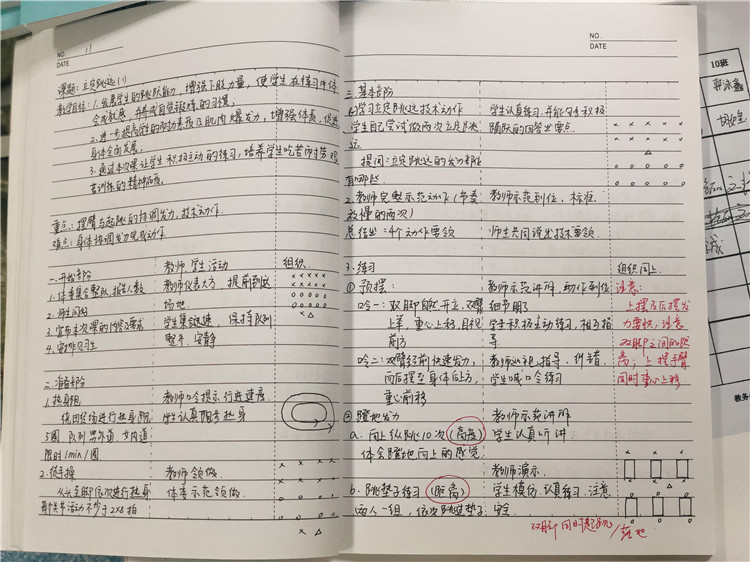 NO. 11
DATE
课题：立定跳远（1）
教学目标：1.发展学生的跳跃能力，增强下肢力量，使学生在练习中体
会成就感，并养成自觉锻炼的习惯。
2.进一步提高学生的耐力素质及肌肉爆发力，增强体质，促进
身体全面发展。
3.通过本次课让学生积极主动的练习，培养学生吃苦耐劳艰
苦训练的精神品质。
重点：摆臂与起跳的协调发力，技术动作
难点：身体协调发力完成动作
一.开始部分 教师 学生活动 组织
1.体委集合整队，报告人数 教师仪表大方 提前到达
2.师生问好 场地
3.宣布本次课的内容及要求 学生集合快速，保持队列
4.安排见习生 整齐、安静
二.准备部分
1.热身组 教师口令提示行进速度
绕田径场进行热身跑 学生认真跑步热身
5圈 队列男外道 女内道
限时1min/圈
2.徒手操 教师领做
从头至脚依次进行热身 体委示范领做
每个关节活动不少于2x8拍
NO.
DATE
三.基本部分
(1)学习立定跳远技术动作 学生认真练习.并能够积极
学生自己尝试做两次立定跳 踊跃的回答出要点
远
提问：立定跳远的发力部位
有哪些
2.教师完整示范动作（常态 教师示范到位，标准
放慢的两次）
总结出：4个动作要领 师生共同说出技术要领
3.练习 组织同上
① 预摆： 教师示范讲解，动作到位 注意：
吟一：双脚自然开立，双臂 细节明了 上摆及后摆发
上举，重心上移，目视 学生积极主动练习，相互指 力要快，注意
前方 导 双脚之间的距
吟二：双臂经前快速发力， 教师巡视指导、纠错 离；上摆手臂
向后摆至身体后方， 学生喊口令练习 同时重心上移
重心前移
② 蹬地发力 教师示范讲解
a.向上纵跳10次（高度） 学生认真听讲
体会蹬地向上的感觉 教师演示
b.跳垫子练习（距离） 学生模仿 认真练习.注意
两人一组，依次跳过垫子 安全
双脚同时起跳/落地
10班